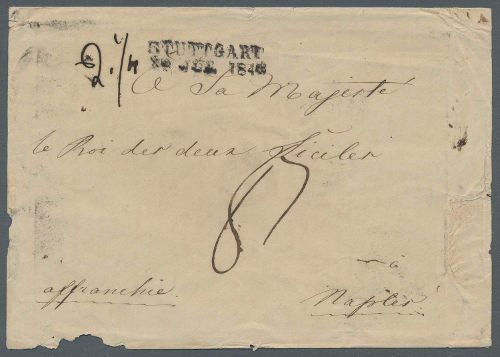 STUTTGART
JUL 1846
A Sa Majesté
le Roi des deux Siciles
à
affranchie.
Naples